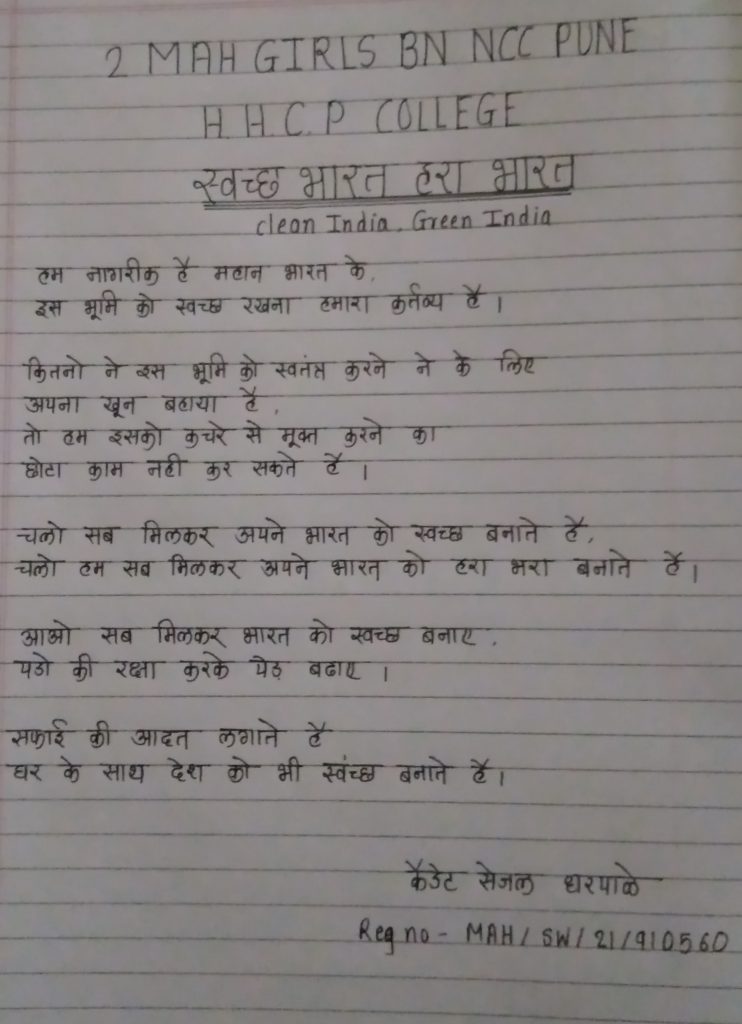 2 MAH GIRLS BN NCC PUNE
H.H.C.P COLLEGE
स्वच्छ भारत हरा भारत
clean India, Green India
हम नागरीक है महान भारत के,
इस भूमि को स्वच्छ रखना हमारा कर्तव्य है।
कितनो ने इस भूमि को स्वतंत्र करने ने के लिए
अपना खून बहाया है,
तो हम इसको कचरे से मूक्त करने का
छोटा काम नही कर सकते है।
चलो सब मिलकर अपने भारत को स्वच्छ बनाते है,
चलो हम सब मिलकर अपने भारत को हरा भरा बनाते है।
आओ सब मिलकर भारत को स्वच्छ बनाए,
पडो की रक्षा करके पेड़ बढाए।
सफाई की आदत लगाते है
घर के साथ देश को भी स्वंच्छ बनाते है।
कैडेट सेजल धरपाळे
Reg no - MAH/SW/21/910560